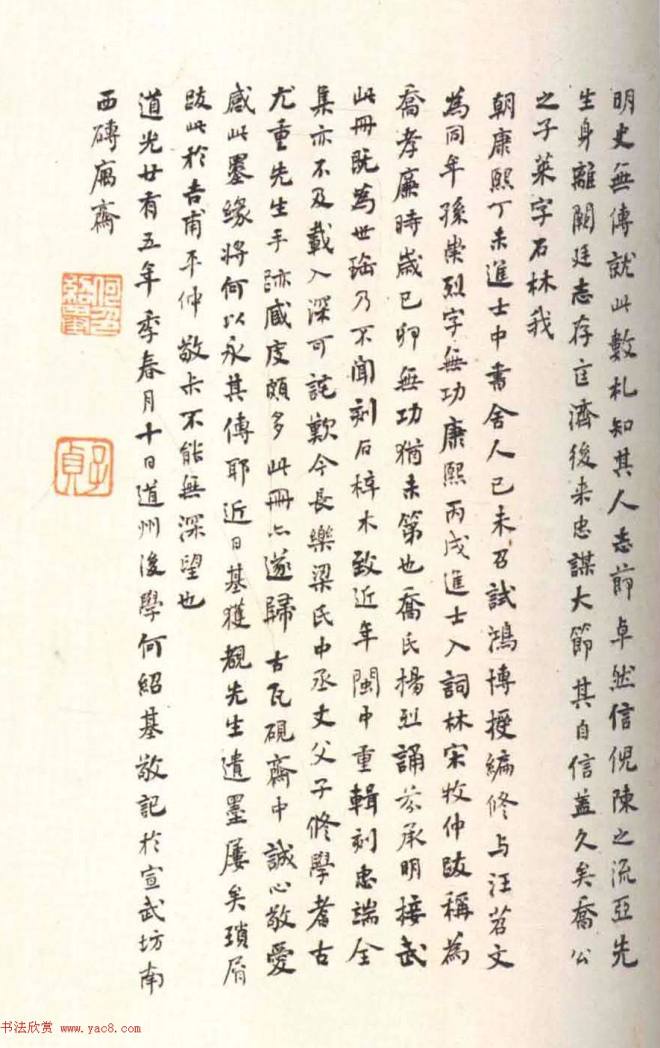 明史無傳就此數札知其人志節卓然信倪陳之流亞先
生身離闕廷志存匡濟後来忠謀大節其自信蓋久矣喬公
之子萊字石林我
朝康熙丁未進士中書舍人己未召試鴻博授編修与汪苕文
為同年孫崇烈字無功康熙丙戌進士入詞林宋牧仲跋稱為
喬孝廉時歲己卯無功猶未第也喬氏揚烈誦芬承明接武
此冊既為世珤乃不聞刻石梓木致近年閩中重輯刻忠端全
集亦不及載入深可詫歎今長樂梁氏中丞丈父子修學耆古
尤重先生手跡感度頗多此冊亦遂歸古瓦硯齋中誠心敬愛
感此墨緣將何以永其傳耶近日基獲覩先生遺墨屢矣瑣屑
跋此於吉甫平仲敬未不能無深望也
道光廿有五年季春月十日道州後學何紹基敬記於宣武坊南
西磚寓齋
何紹基
子貞
书法欣赏 www.yac8.com